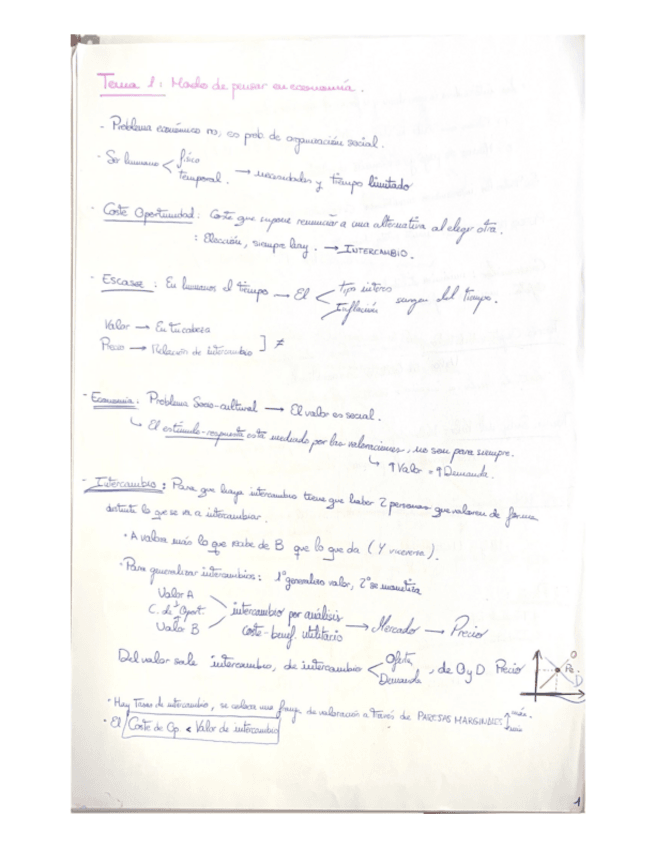 Tema 1: Modo de pensar en economía.
- Problema económico no, es prob. de organización social.
- Ser humano < físico
temporal. → necesidades y tiempo limitado
- Coste Oportunidad: Coste que supone renunciar a una alternativa al elegir otra.
: Elección, siempre hay. → INTERCAMBIO.
- Escasez: En humanos el tiempo → El < Tipo interés
Inflación surgen del tiempo.
Valor → En tu cabeza
Precio → Relación de intercambio ] ≠
- Economía: Problema Socio-cultural → El valor es social.
↳ El estímulo-respuesta está mediado por las valoraciones, no son para siempre.
↳ ↑ Valor = ↑ Demanda.
- Intercambio: Para que haya intercambio tiene que haber 2 personas que valoren de forma
distinta lo que se va a intercambiar.
· A valora más lo que recibe de B que lo que da (Y viceversa).
· Para generalizar intercambios: 1º generalizo valor, 2º se monetiza
Valor A
C. de Oport. intercambio por análisis
Valor B coste-benef. utilitario → Mercado → Precio
Del valor sale intercambio, de intercambio < Oferta
Demanda , de O y D Precio
O
Pe.
D
· Hay de intercambio, se coloca una franja de valoración a través de PAREJAS MARGINALES
· El Coste de Op. < Valor de intercambio
1